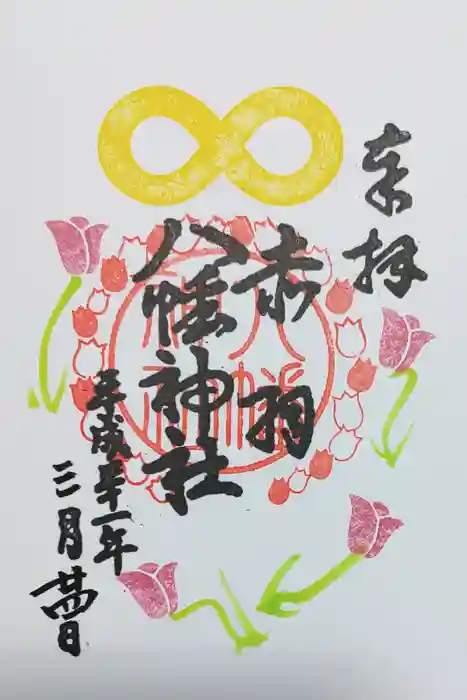 奉拝
赤羽
八幡神社
平成卅一年
三月廿四日